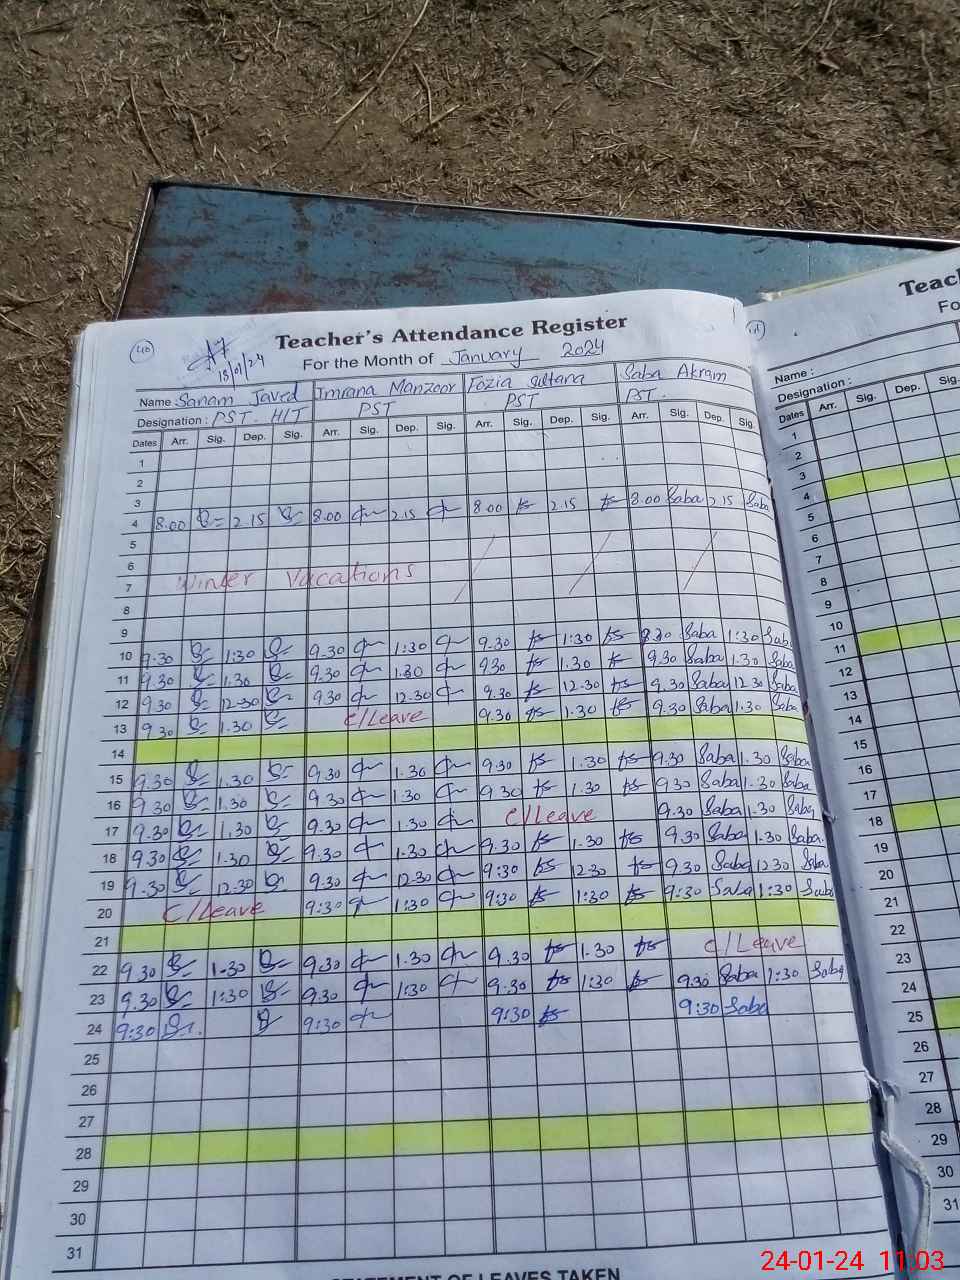 Teacher's Attendance Register
For the Month of January 2024
40
18/01/24
Name Sanam Javed Imrana Manzoor Fozia Sultana Saba Akram
Designation: PST. H/T PST PST PST.
Dates Arr. Sig. Dep. Sig. Arr. Sig. Dep. Sig. Arr. Sig. Dep. Sig. Arr. Sig. Dep. Sig.
1
2
3
4 8.00 2.15 8.00 2.15 8.00 2.15 8.00 Saba 2.15 Saba
5
6
7 Winter Vacations
8
9
10 9.30 1:30 9.30 1:30 9.30 1:30 9.30 Saba 1:30 Saba
11 9.30 1.30 9.30 1.30 9.30 1.30 9.30 Saba 1.30 Saba
12 9.30 12-30 9.30 12-30 9.30 12-30 9.30 Saba 12.30 Saba
13 9.30 1.30 C/Leave 9.30 1.30 9.30 Saba 1.30 Saba
14
15 9.30 1.30 9.30 1.30 9.30 1.30 9.30 Saba 1.30 Saba
16 9.30 1.30 9.30 1.30 9.30 1.30 9.30 Saba 1.30 Saba
17 9.30 1.30 9.30 1.30 C/Leave 9.30 Saba 1.30 Saba
18 9.30 1.30 9.30 1.30 9.30 1.30 9.30 Saba 1.30 Saba.
19 9.30 12.30 9.30 12.30 9:30 12.30 9.30 Saba 12.30 Saba
20 C/Leave 9:30 1:30 9:30 1:30 9:30 Saba 1:30 Saba
21
22 9.30 1.30 9.30 1.30 9.30 1.30 C/Leave
23 9.30 1:30 9.30 1:30 9:30 1:30 9.30 Saba 1:30 Saba
24 9:30 9:30 9:30 9:30 Saba
25
26
27
28
29
30
31
STATEMENT OF LEAVES TAKEN
Name :
Designation :
Dates Arr. Sig. Dep. Sig.
1
2
3
4
5
6
7
8
9
10
11
12
13
14
15
16
17
18
19
20
21
22
23
24
25
26
27
28
29
30
31
24-01-24 11:03